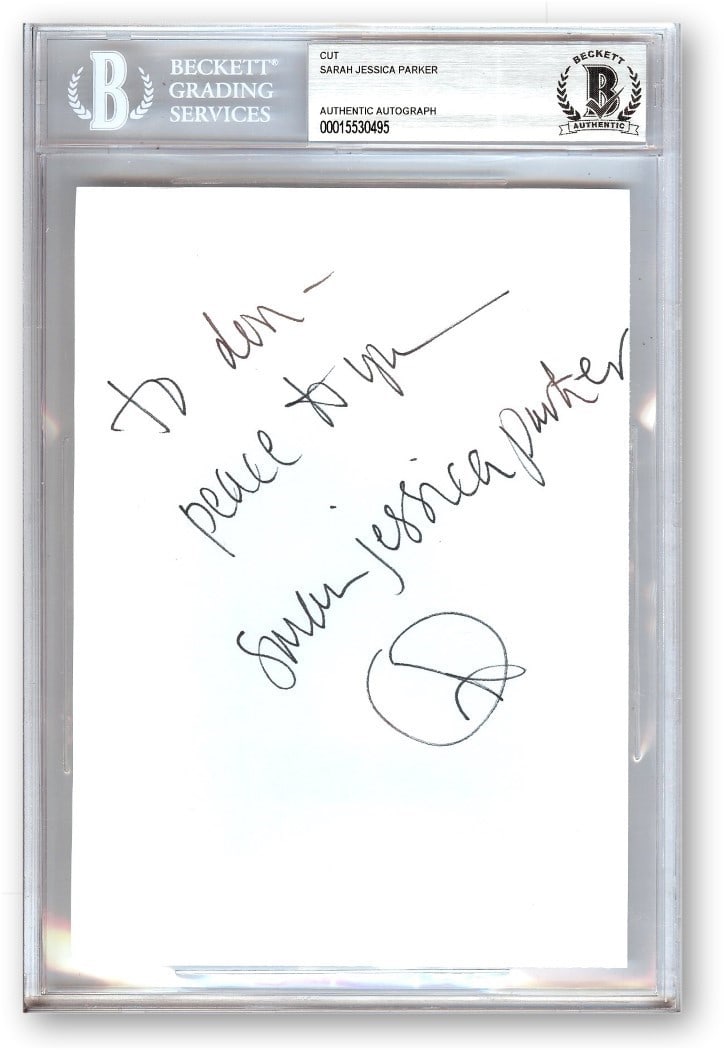 BECKETT®
GRADING
SERVICES
B
CUT
SARAH JESSICA PARKER
AUTHENTIC AUTOGRAPH
00015530495
BECKETT
B
AUTHENTIC
to
peace to you
sarah jessica parker